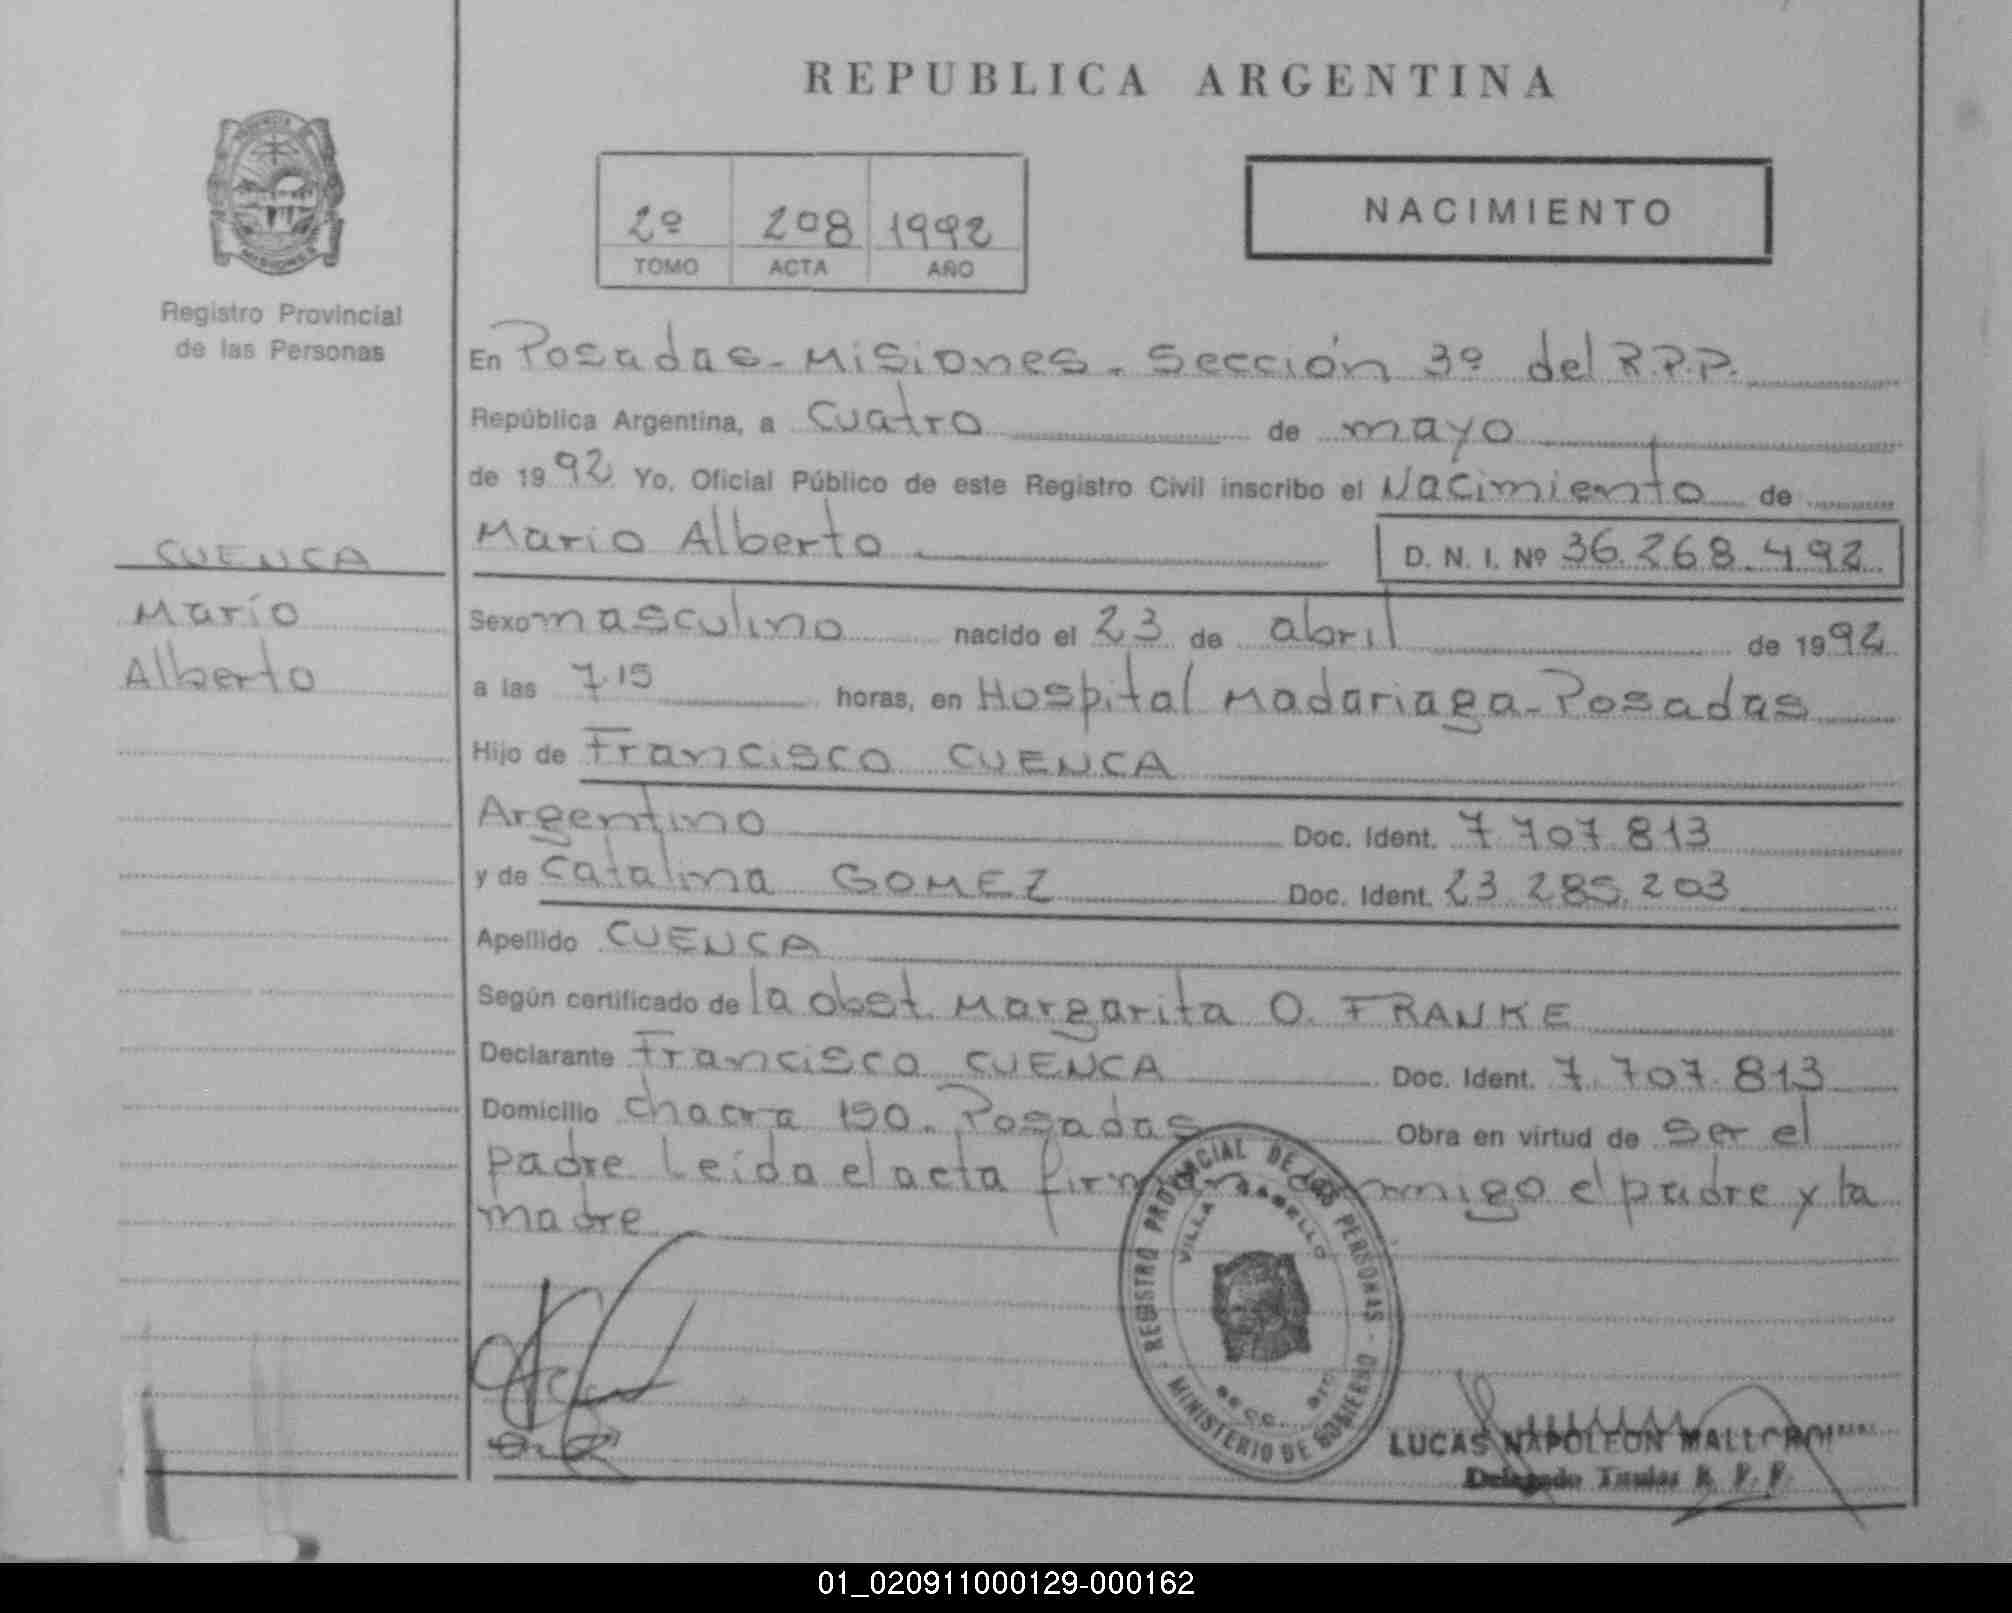 REPUBLICA ARGENTINA
PROVINCIA
MISIONES
Registro Provincial
de las Personas
2º 208 1992
TOMO ACTA AÑO
NACIMIENTO
En Posadas - Misiones. Sección 3º del R.P.P.
República Argentina, a cuatro de mayo
de 1992 Yo, Oficial Público de este Registro Civil inscribo el Nacimiento de
Mario Alberto D. N. I. Nº 36.268.492
CUENCA
Mario
Alberto
Sexo masculino nacido el 23 de abril de 1992
a las 7.15 horas, en Hospital Madariaga - Posadas
Hijo de Francisco CUENCA
Argentino Doc. Ident. 7.707.813
y de Catalina GOMEZ Doc. Ident. 23.285.203
Apellido CUENCA
Según certificado de la obst. Margarita O. FRANKE
Declarante Francisco CUENCA Doc. Ident. 7.707.813
Domicilio Chacra 150. Posadas Obra en virtud de ser el
padre Leída el acta firman conmigo el padre y la
madre
REGISTRO PROVINCIAL DE LAS PERSONAS - MINISTERIO DE GOBIERNO -
VILLA
SECC.
LUCAS NAPOLEON
Delegado Titular R. P. P.
01_020911000129-000162